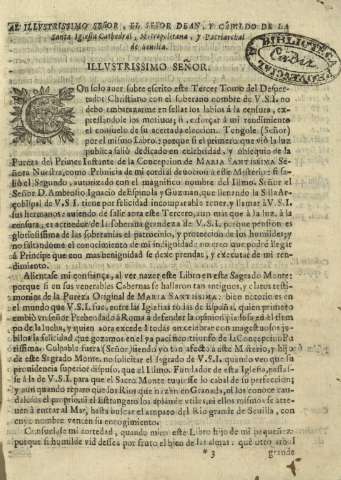 AL ILLVSTRISSIMO SEÑOR, EL SEÑOR DEAN, Y CABILDO DE LA
Santa Iglesia Cathedral, Metropolitana, y Patriarchal
de Sevilla.
BIBLIOTECA
Cadiz
PROVINCIAL
ILLVSTRISSIMO SEÑOR.
CON solo aver sobre escrito este Tercer Tomo del Desper-
Christiano con el soberano nombre de V.S.I. no
debo embarazarme en sellar los labios à la censura, ex-
pressandole los motivos; ni esforçar à mi rendimiento
el consuelo de su acertada eleccion. Tengole (Señor)
por el mismo Libro: porque si el primero que viò la luz
publica saliò dedicado en celebridad, y obsequio de la
Pureza del Primer Instante de la Concepcion de MARIA SANTISSIMA Señora
Nuestra, como Primicia de mi cordial devocion à este Mysterio: si sa-
liò el Segundo, autorizado con el magnifico nombre del Ilmo. Señor el
Señor D. Ambrosio Ignacio de Espinola y Guzman, que llenando la Silla Ar-
çobispal de V.S.I. tiene por felicidad incomparable tener, y llamar à V.S.I.
sus hermanos: aviendo de salir aora este Tercero, aun mas que à la luz, à la
censura, es acreedor de la soberana grandeza de V.S.I. porque pension es
gloriosissima de las soberanias el patrocinio, y protecion de los humildes; y
no faltandome el conocimiento de mi indignidad; no creo que podrè llegar
à Principe que con mas benignidad se dexe proteger, y executar de mi ren-
dimiento.
Alientase mi confiança, al ver nazer este Libro en este Sagrado Monte:
porque si en sus venerables Cabernas se hallaron tan antiguos, y claros testi-
monios de la Pureza Original de MARIA SANTISSIMA: bien notorio es en
el mundo que V.S.I. fue, entre las Iglesias todas de España, quien primero
embiò vn señor Prebendado à Roma à defender la opinion piadosa en el tiem-
po de la lucha, y quien aora excede à todas en celebrar con magestuosos ju-
bilos la felicidad que gozamos en el ya pacifico triunfo de la Concepcion Pu-
rissima. Culpable fuera (Señor) siendo yo tan afecto à este Mysterio, y hijo
de este Sagrado Monte, no solicitar el sagrado de V.S.I. quando veo que su
providencia superior dispuso, que el Ilmo. Fundador de esta Iglesia, passas-
se à la de V.S.I. para que el Sacro Monte tuviesse lo cabal de su perfeccion:
y aun quando reparo que los Rios que nazen en Granada, ni los conoze cau-
dalosos el proprio si lustre
en à entrar al Mar, hasta buscar el amparo del Rio grande de Sevilla, con
cuyo nombre vencen su encogimiento.
Consuelase mi cortedad, quando miro este Libro hijo de mi pequeñez:
porque si humilde vid dessea por fruto el bien de las almas: què otro arbol
* 3
grande